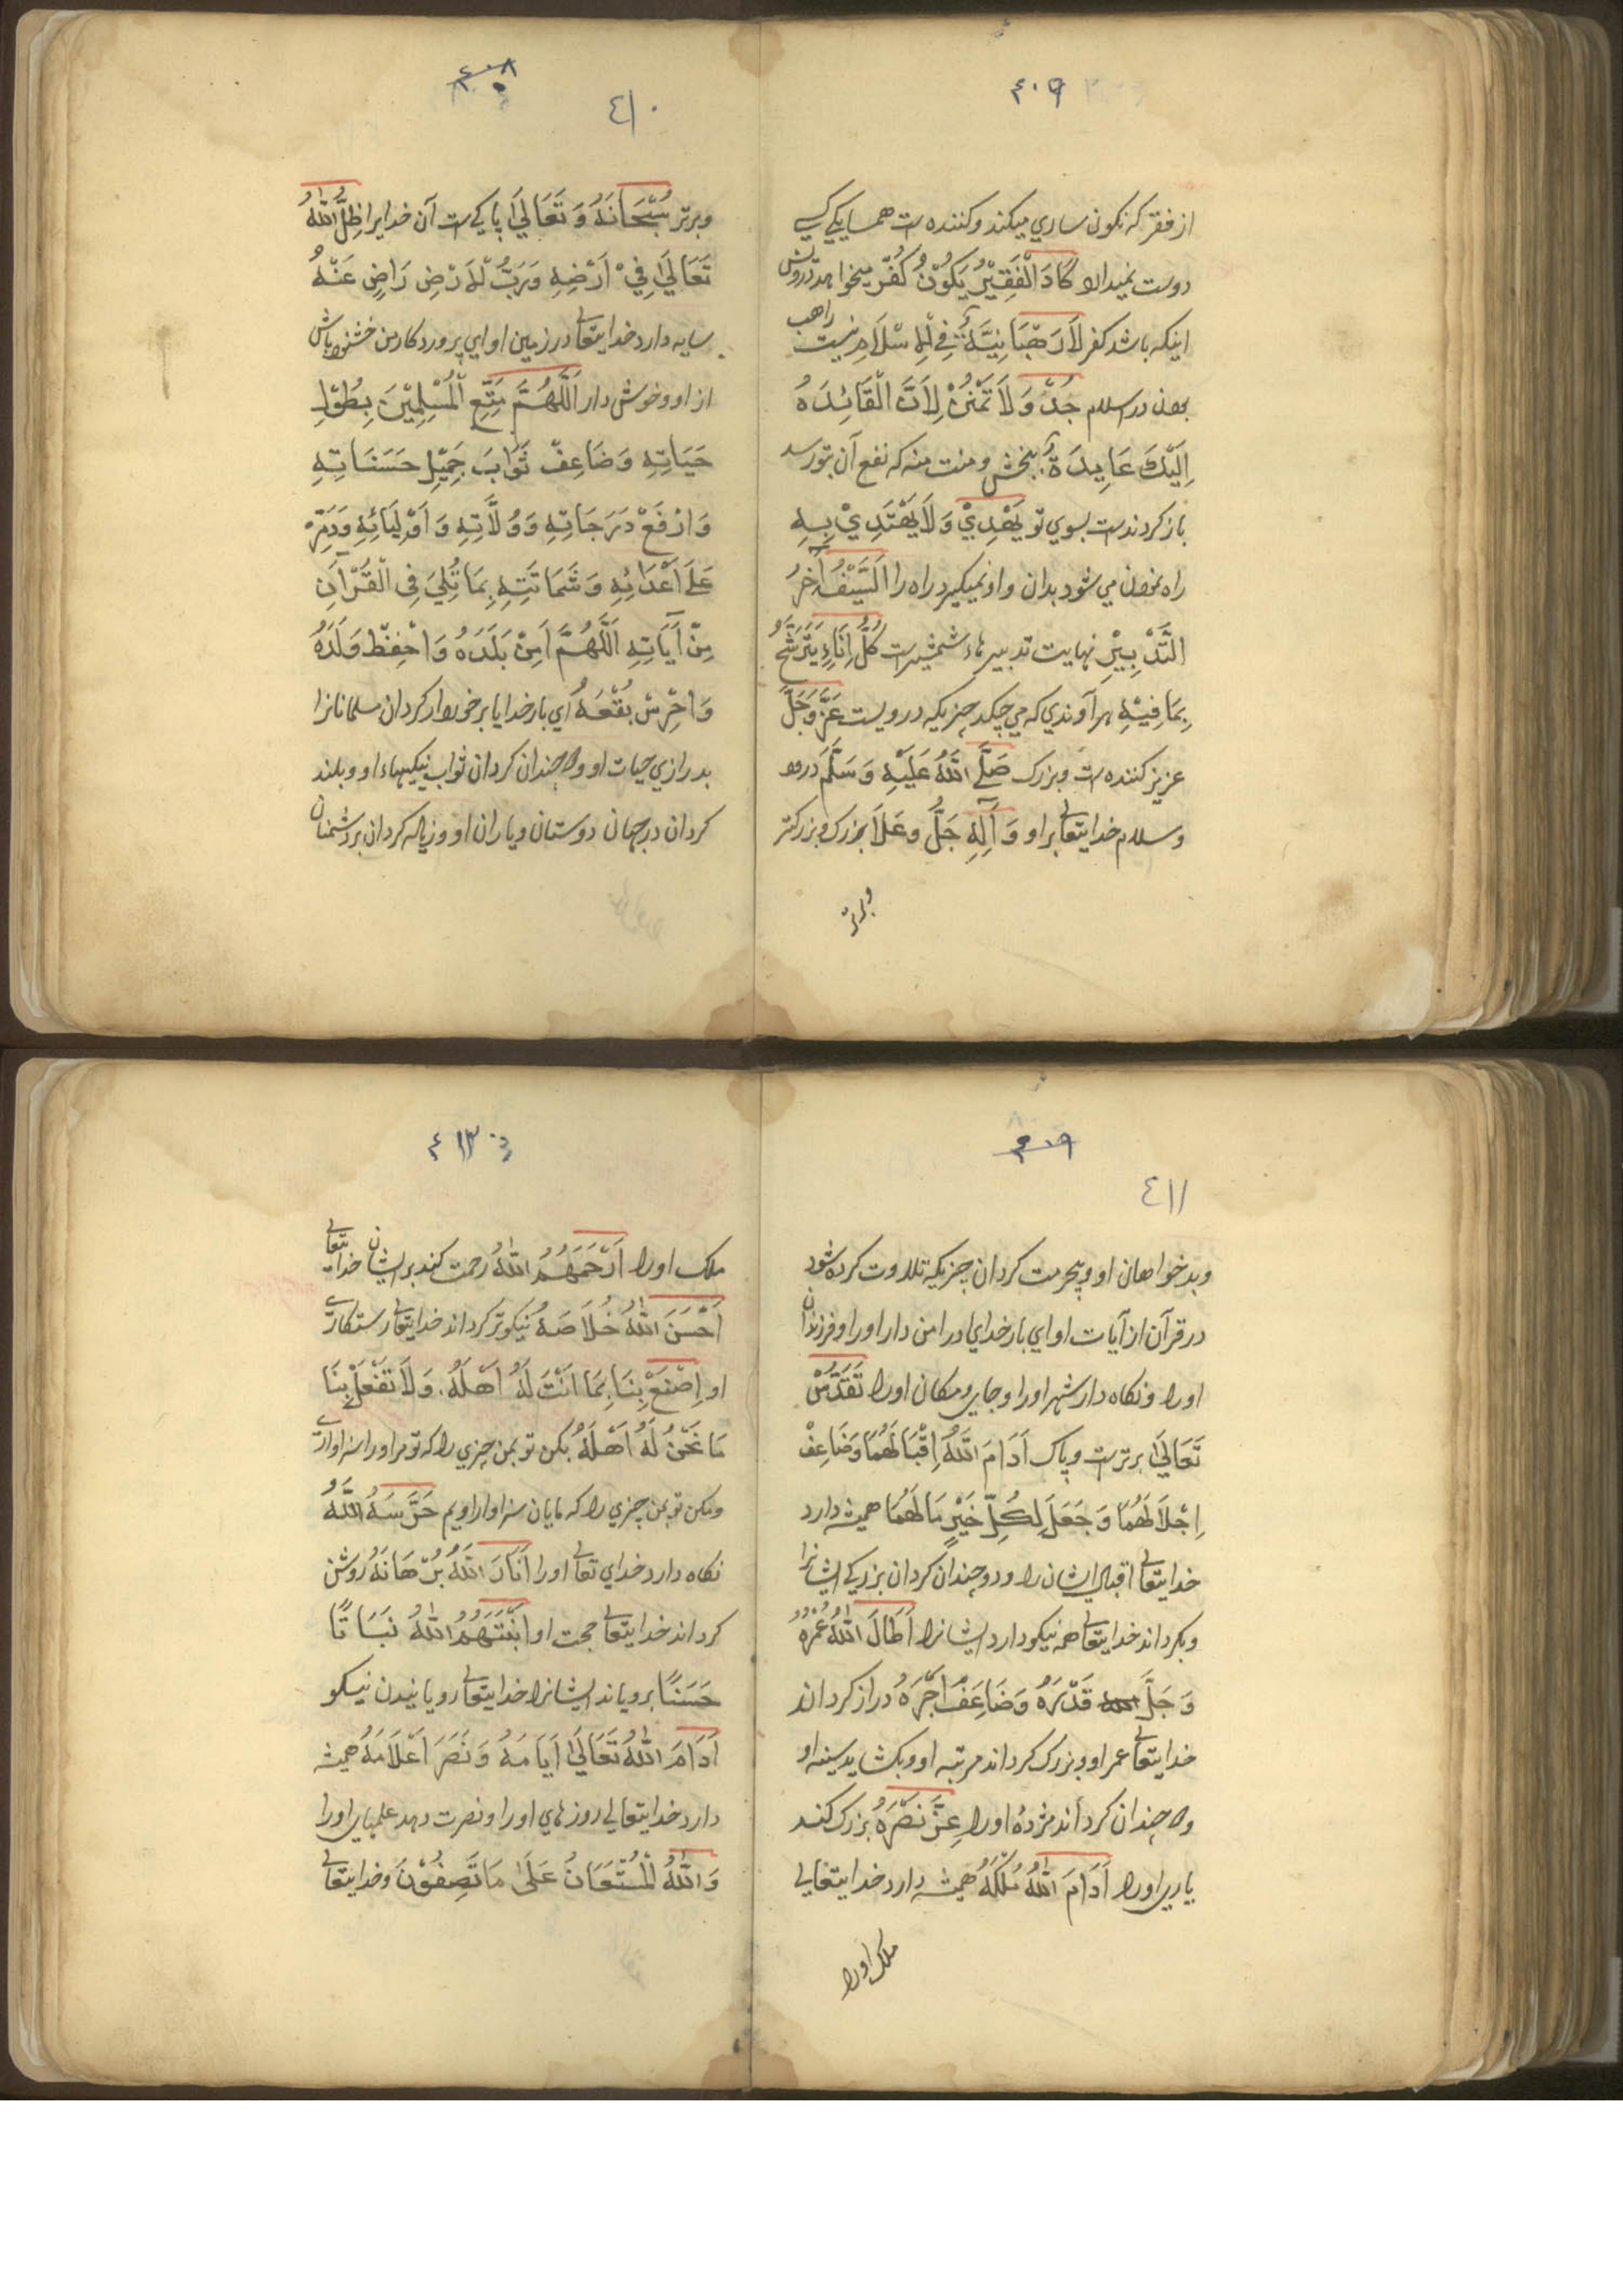 ٤٠٩
از فقر که نکون ساری میکند و کننده است همسایکی کسی
دوست نمیدارد كَادَ الْفَقِيْرُ يَكُوْنُ كُفْرً میخواهد درویش
اینکه باشد کفر لَارَهْبَانِيَّةَ فِي لْاِسْلَامِ نیست راهب
بودن در اسلام جُدْ وَلَا تَمْنُنْ لِاَنَّ الْقَائِدَهُ
اِلَيْكَ عَايِدَةٌ ببخش و منت منه که نفع آن بتو رسد
باز کردنده است بسوی تو يَهْدِيْ وَلَا يَهْتَدِيْ بِهِ
راه نمودن می شود بدان و او نمیکیرد راه را اَلسَّيْفُ آخِرُ
التَّدْبِيْرِ نهایت تدبیرها شمشیر است كُلُّ اِنَاءٍ يَتَرَشَّحُ
بِمَا فِيْهِ هر آوندی که می چکد چیزیکه درویست عَزَّ وَجَلَّ
عزیز کننده است و بزرک صَلَّى اللّٰهُ عَلَيْهِ وَسَلَّمَ درود
و سلام خدایتعالی بر او وَآلِهِ جَلَّ وعَلَا بزرک و بزرکتر
وبرتر
٤٠٨
٤١٠
وبرتر سُبْحَانَهُ وَتَعَالَى پاکی است آن خدایرا ظِلُّ اللّٰهُ
تَعَالَى فِيْ اَرْضِهِ وَرَبُّ لْاَرْضِ رَاضٍ عَنْهُ
سایه دارد خدایتعالی در زمین او ای پروردکار من خشنود باش
از او و خوش دار اَللّٰهُمَّ مَتِّعِ الْمُسْلِمِيْنَ بِطُوْلِ
حَيَاتِهِ وَضَاعِفْ ثَوَابَ جَمِيْلِ حَسَنَاتِهِ
وَارْفَعْ دَرَجَاتِهِ وَوُلَاتِهِ وَاَوْلِيَائِهِ وَدَمِّرْ
عَلَى اَعْدَائِهِ وَشَمَاتَتِهِ بِمَا تُلِيَ فِى الْقُرْآنِ
مِنْ آيَاتِهِ اَللّٰهُمَّ آمِنْ بَلَدَهُ وَاحْفِظْ وَلَدَهُ
وَاحْرِسْ بُقْعَهُ ای بار خدایا برخوردار کردان مسلمانانرا
بدرازی حیات او و دو چندان کردان ثواب نیکیهاء او و بلند
کردان درجهان دوستان و یاران او و زیاله کردان بر دشمنان
٤١١
وبدخواهان او و بیحرمت کردان چیزیکه تلاوت کرده شود
در قرآن از آیات او ای بار خدای در امن دار اورا و فرزندان
اورا و نکاه دار شهر اورا وجای و مکان اورا تَقَدَّسْ
تَعَالَى برتر است و پاک اَدَامَ اللّٰهُ اِقْبَالَهُمَا وَضَاعِفْ
اِجْلَالَهُمَا وَجَعَلَ لِكُلِّ خَيْرٍ مَالَهُمَا همیشه دارد
خدایتعالی اقبال ایشان را و دو چندان کردان بزرکی ایشانرا
و بکرداند خدایتعالی همه نیکو دارد ایشانرا اَطَالَ اللّٰهُ عُمْرَهُ
وَجَلَّ قَدْرَهُ وَضَاعَفَ اَجْرَهُ دراز کرداند
خدایتعالی عمر او و بزرک کرداند مرتبه او و بکشاید سینه او
و دو چندان کرداند مزده اورا عِزَّ نَصْرَهُ بزرک کند
یاری اورا اَدَامَ اللّٰهُ مُلْكَهُ همیشه دارد خدایتعالی
ملک اورا
٤١٢
ملک اورا اَرْحَمَهُمُ اللّٰهُ رحمت کند بر ایشان خدایتعالی
اَحْسَنَ اللّٰهُ خُلَاصَهُ نیکوتر کرداند خدایتعالی رستکاری
او اِصْنَعْ بِنَا بِمَا اَنْتَ لَهُ اَهْلَهُ وَلَا تَفْعَلْ بِنَا
مَا نَحْنُ لَهُ اَهْلَهُ بکن تو بمن چیزی را که تو مر اورا سزاواری
و مکن تو بمن چیزی را که مایان سزاوار اویم حَرَّسَهُ اللّٰهُ
نکاه دارد خدای تعالی اورا اَنَارَ اللّٰهُ بُرْهَانَهُ روشن
کرداند خدایتعالی حجت او اَنْبَتَهُمُ اللّٰهُ نَبَاتًا
حَسَنًا برویاند ایشانرا خدایتعالی رویانیدن نیکو
اَدَامَ اللّٰهُ تَعَالَى اَيَامَهُ وَنَصَرَ اَعْلَامَهُ همیشه
دارد خدایتعالی روزهای اورا و نصرت دهد علمهای اورا
وَاللّٰهُ لْمُسْتَعَانُ عَلَى مَا تَصِفُوْنَ وخدایتعالی